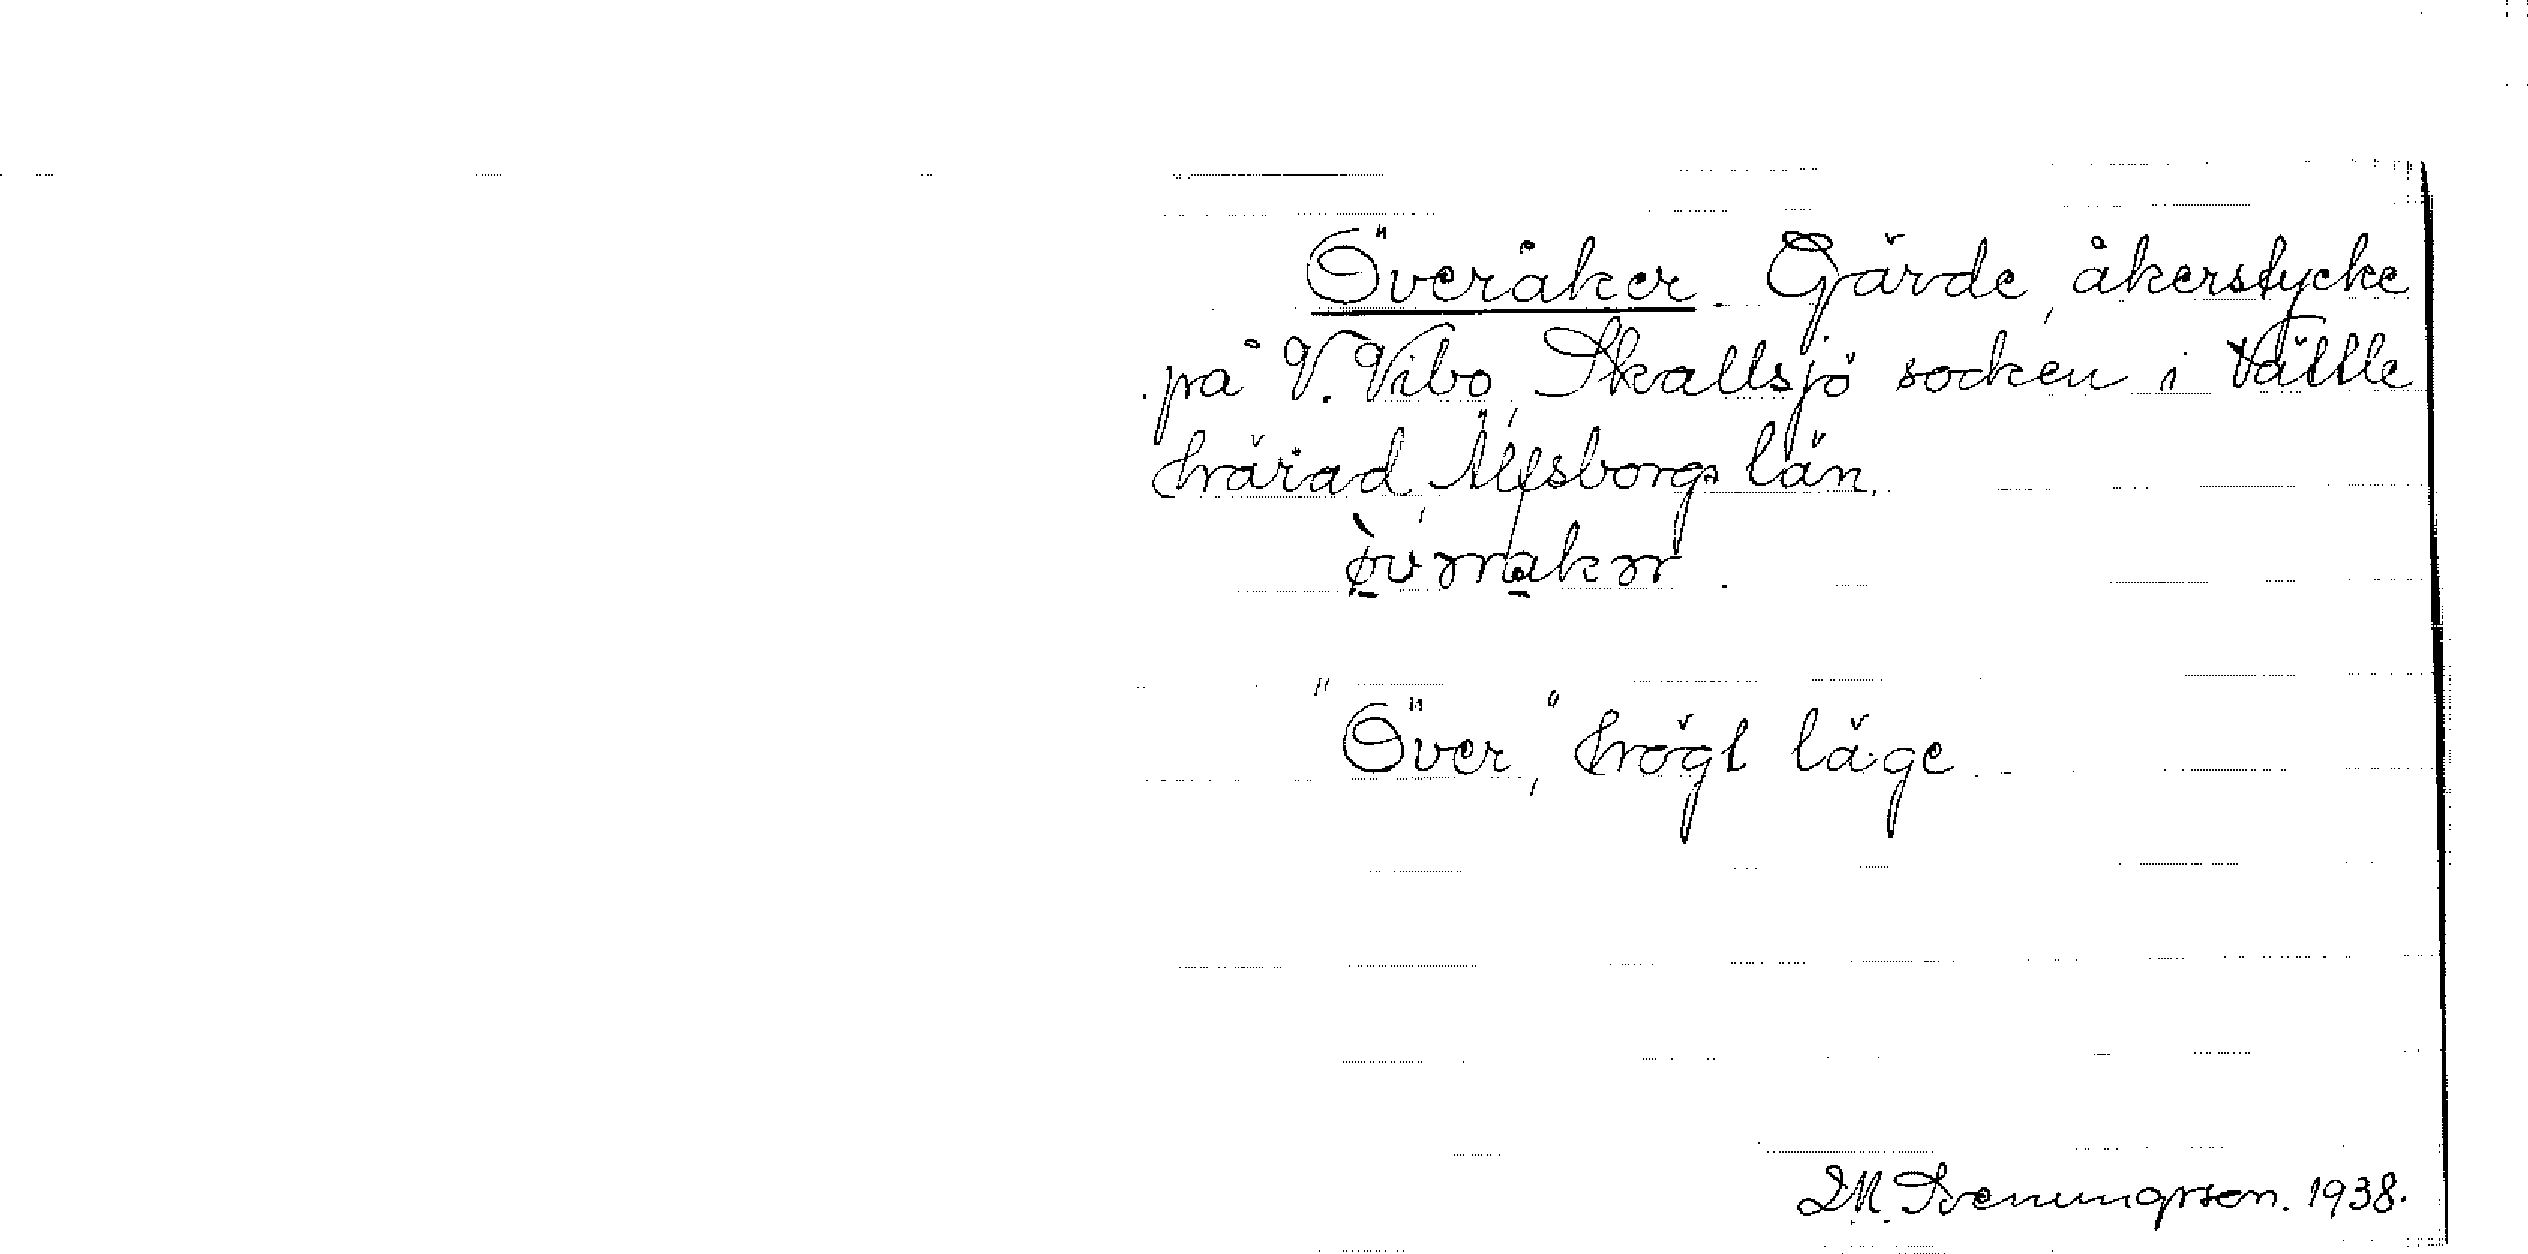 Överåker. Gärde, åkerstycke
på V. Vibo, Skallsjö socken i Vättle
härad, Älfsborgs län.
"Över," högt läge.
D.M. Svenungsson. 1938.